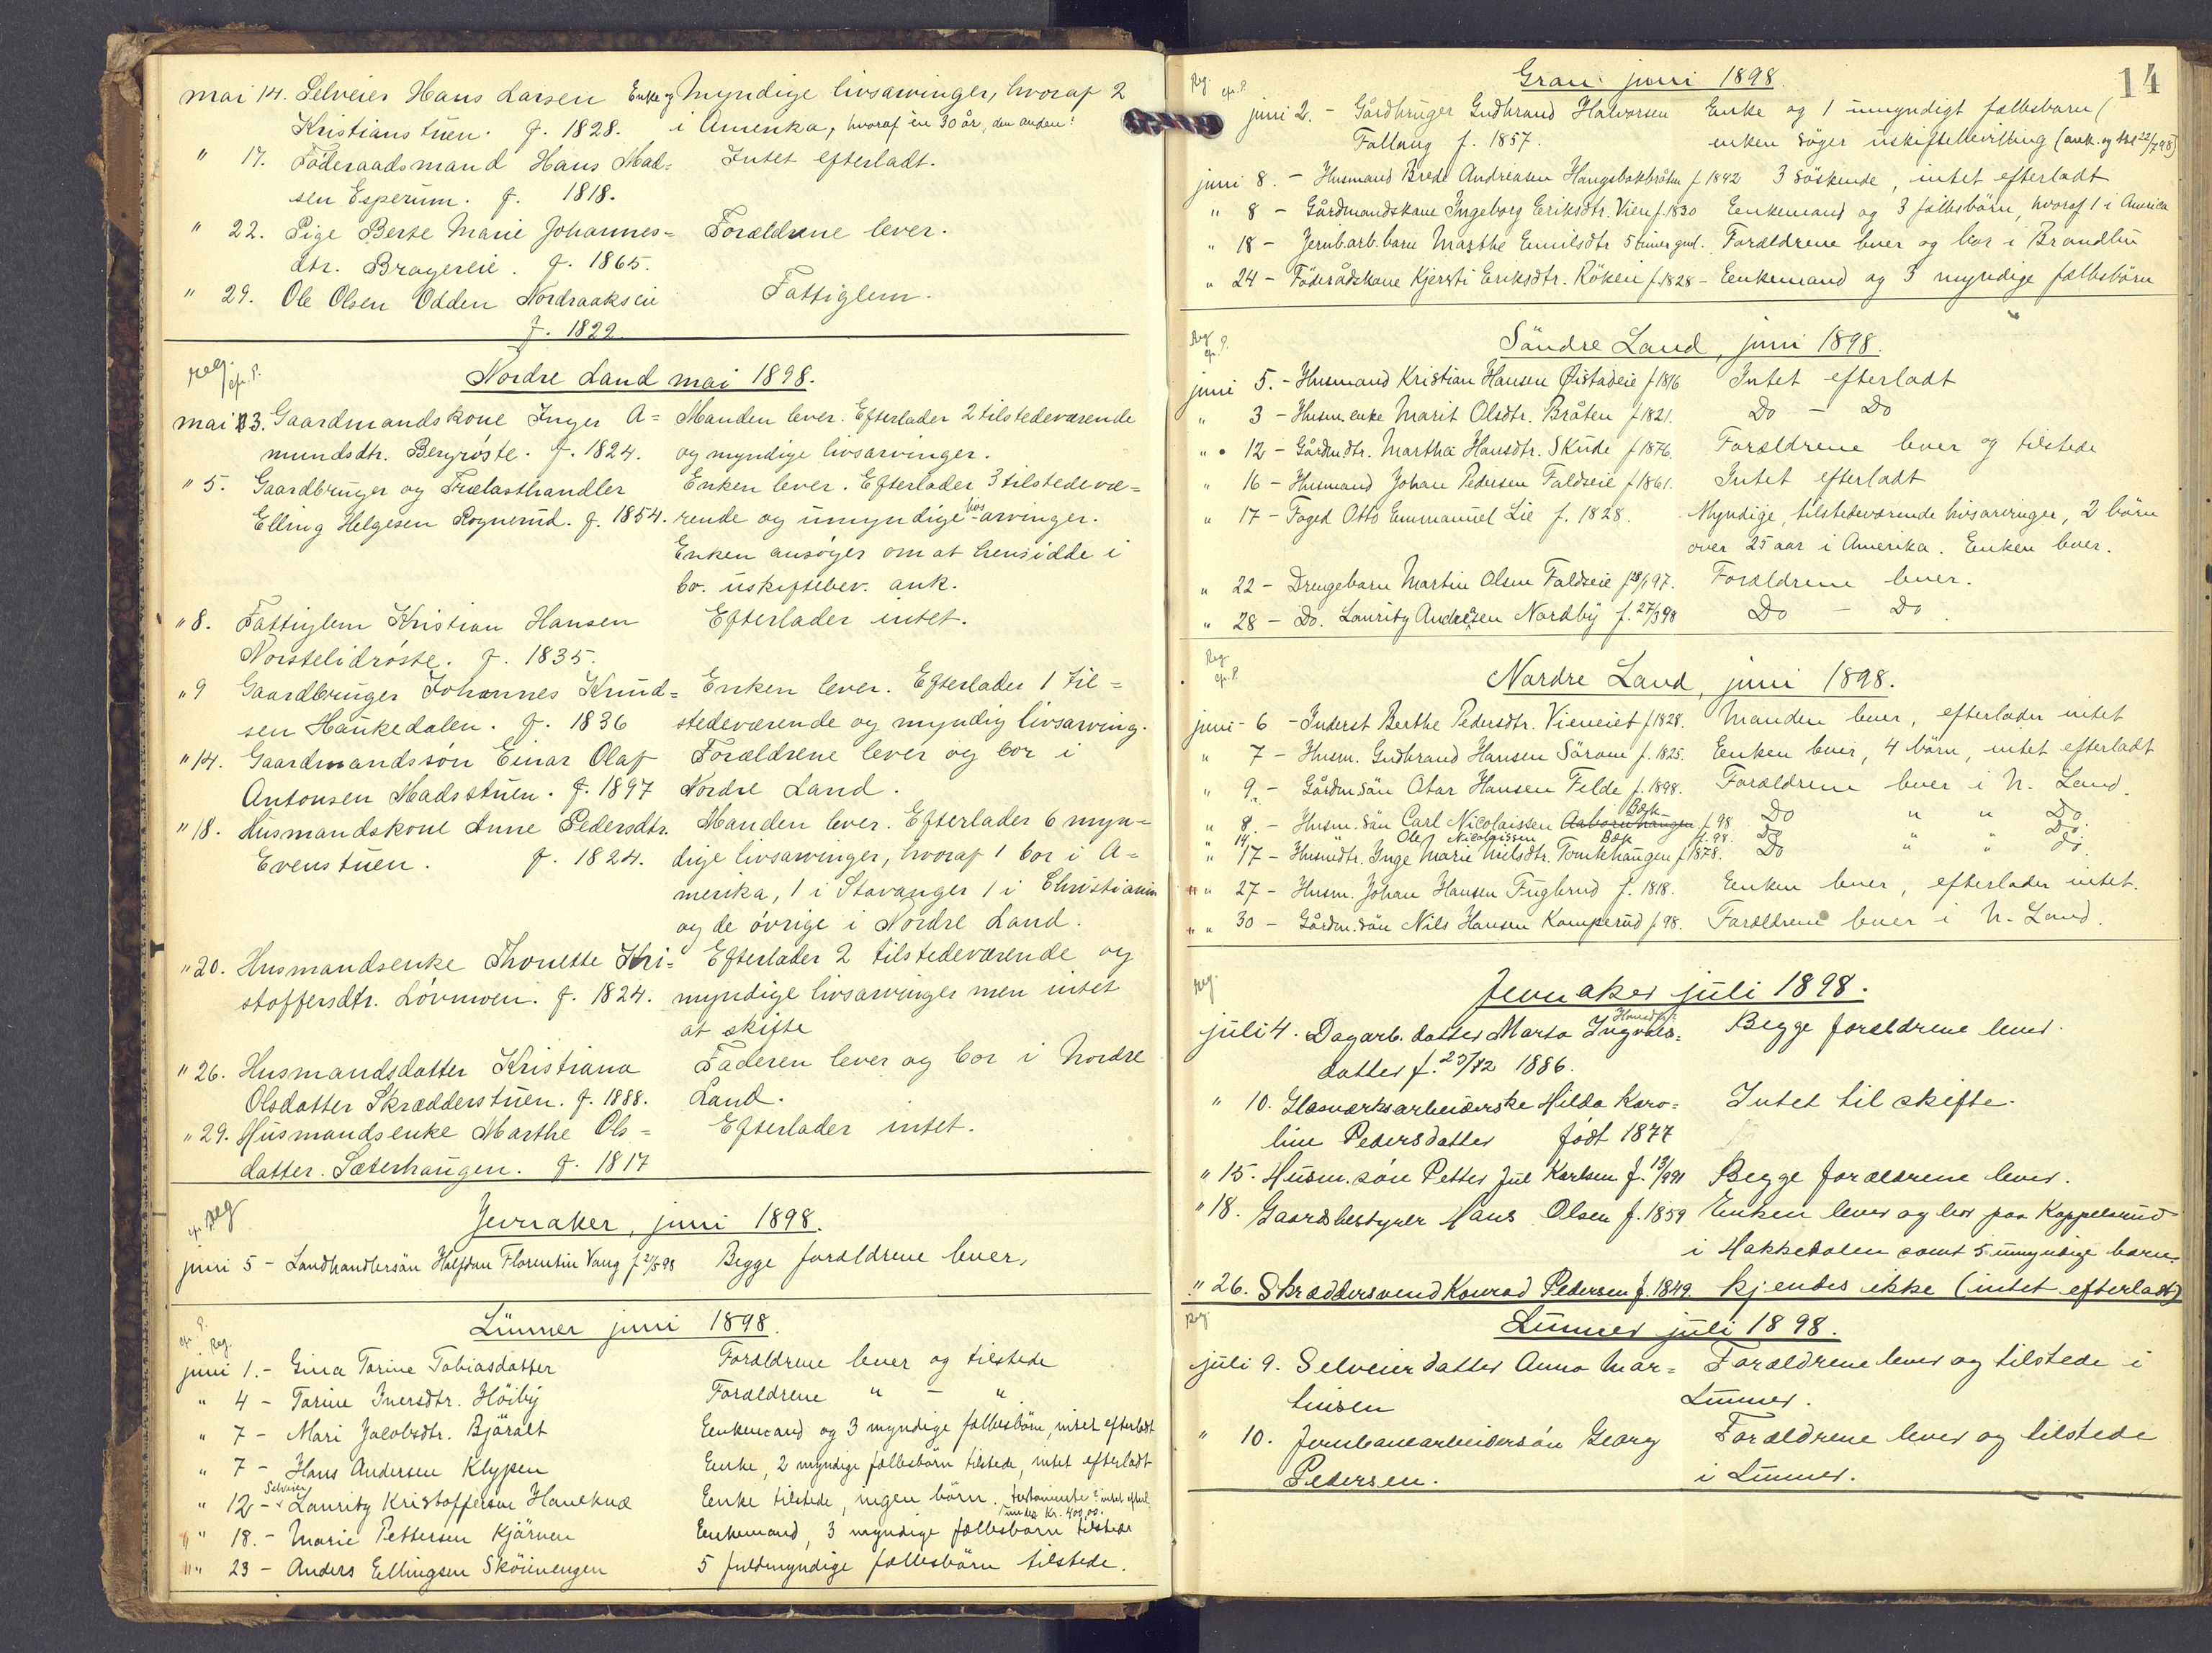 mai 14. Selveier Hans Larsen Enke og Myndige livsarvinger, hvoraf 2
Kristianstuen. f. 1828. i Amerika, hvoraf én 30 år, den anden?
" 17. Föderaadsmand Hans Mad= Intet efterladt.
sen Esperum. f. 1818.
" 22. Pige Berte Marie Johannes= Forældrene lever.
dtr. Bragereie. f. 1865.
" 29. Ole Olsen Odden Nordraakseie Fattiglem.
f. 1822.
reg. cfr. P.
Nordre Land mai 1898.
mai 3. Gaardmandskone Inger A= Manden lever. Efterlader 2 tilstedeværende
mundsdtr. Bergröste. f. 1824. og myndige livsarvinger.
" 5. Gaardbruger og Trælasthandler Enken lever. Efterlader 3 tilstedevæ=
Elling Helgesen Rognerud. f. 1854. rende og umyndige livsarvinger.
Enken ansöger om at hensidde i
bo. uskiftebev. ank.
" 8. Fattiglem Kristian Hansen Efterlader intet.
Norstelidröste. f. 1835.
" 9 Gaardbruger Johannes Knud= Enken lever. Efterlader 1 til=
sen Haukedalen. f. 1836 stedeværende og myndig livsarving.
" 14. Gaardmandssön Einar Olaf Forældrene lever og bor i
Antonsen Madsstuen. f. 1897 Nordre Land.
" 18. Husmandskone Anne Pedersdtr. Manden lever. Efterlader 6 myn=
Evenstuen. f. 1824. dige livsarvinger, hvoraf 1 bor i A=
merika, 1 i Stavanger 1 i Christiania
og de övrige i Nordre Land.
" 20. Husmandsenke Thonette Kri= Efterlader 2 tilstedeværende og
stoffersdtr. Lövmoen. f. 1824. myndige livsarvinger men intet
at skifte
" 26. Husmandsdatter Kristiana Faderen lever og bor i Nordre
Olsdatter Skrædderstuen. f. 1888. Land.
" 29. Husmandsenke Marthe Ols= Efterlader intet.
datter. Sæterhaugen. f. 1817
cfr. reg
Jevnaker, juni 1898.
juni 5 - Landhandlersön Halfdan Florentin Vang f. 2/5 98 Begge forældrene lever,
cfr. P. Reg.
Lunner juni 1898.
juni 1. - Gina Torine Tobiasdatter Forældrene lever og tilstede
" 4 - Torine Iversdtr. Höiby Forældrene " - "
" 7 - Mari Jacobsdtr. Björalt Eenkemand og 3 myndige fællesbörn, intet efterladt
" 7 - Hans Andersen Klypen Eenke, 2 myndige fællesbörn tilstede, intet efterladt
" 12 - Selveier Lauritz Kristoffersen Haneknæ Eenke tilstede, ingen börn. testamente? intet efterl.
under Kr. 400,00.
" 18. - Marie Pettersen Kjörven Eenkemand, 3 myndige fællesbörn tilstede
" 23 - Anders Ellingsen Sköienengen 5 fuldmyndige fællesbörn tilstede.
14
Reg. cfr. P.
Gran juni 1898.
juni 2. - Gårdbruger Gudbrand Halvorsen Enke og 1 umyndigt fællesbarn (
Fallang f. 1857. enken söger uskiftebevilling
juni 8. - Husmand Brede Andreasen Hangsbakbråten f 1842 3 söskende, intet efterladt
" 8 - Gårdmandskone Ingeborg Eriksdtr. Vien f. 1830 Eenkemand og 3 fællesbörn, hvoraf 1 i America
" 18 - Jernb.arb. barn Marthe Emilsdtr 5 timer gml. Forældrene lever og bor i Brandbu
" 24 - Föderådskone Kjersti Eriksdtr. Röken f. 1828 - Eenkemand og 3 myndige fællesbörn
Reg cfr. P.
Söndre Land, juni 1898.
juni 5. - Husmand Kristian Hansen Öistadeie f 1816 Intet efterladt
" 3 - Husm. enke Marit Olsdtr. Bråten f 1821. Do - Do
" 12 - Gårdm.dtr. Martha Hansdtr. Skute f 1876. Forældrene lever og tilstede
" 16 - Husmand Johan Pedersen Faldseie f 1861. Intet efterladt
" 17 - Foged Otto Emmanuel Lie f. 1828. Myndige, tilstedeværende livsarvinger, 2 börn
over 25 aar i Amerika. Enken lever.
" 22 - Drengebarn Martin Olsen Faldseie Forældrene lever.
" 28 - Do. Lauritz Andresen Nordby f. 27/3 98 Do - Do
Reg cfr. P.
Nordre Land, juni 1898.
juni - 6 - Inderst Berthe Pedersdtr. Vieneiet f 1828. Manden lever, efterlader intet
" 7 - Husm. Gudbrand Hansen Sörom f. 1825. Eenken lever, 4 börn, intet efterladt
" 9 - Gårdm.sön Otar Hansen Felde f. 1898. Forældrene lever i N. Land.
" 8. - Husm. sön Carl Nicolaissen Bæk f. 98 Do " " Do
" 14. Ole Nicolaissen Bæk f. 98. Do " " Do.
" 17 - Husmdtr. Inge Marie Nilsdtr. Tomtehaugen f 1878. Do " " Do.
" 27 - Husm. Johan Hansen Fuglerud f. 1818. Eenken lever, efterlader intet.
" 30 - Gårdm.sön Nils Hansen Kamperud f. 98. Forældrene lever i N. Land.
reg
Jevnaker juli 1898.
juli 4. Dagarb. datter Marta Ingvals= Begge forældrene lever.
datter f. 1886.
" 10. Glasværksarbeiderske Hilda Karo= Intet til skifte.
line Pedersdatter född 1877
" 15. Husm. sön Petter Jul Karlsen f. 13/9 91 Begge forældrene lever.
" 18. Gaardsbestyrer Hans Olsen f. 1859 Enken lever og bor paa Koppelsrud
i Hakkedalen samt 5 umyndige barn.
" 26. Skræddersvend Konrad Pedersen f. 1849. kjendes ikke (intet efterladt)
reg
Lunner juli 1898.
juli 9. Selveierdatter Anna Mar= Forældrene lever og tilstede i
tinsen Lunner.
" 10. Jernbanearbeidersön Georg Forældrene lever og tilstede
Pedersen. i Lunner.